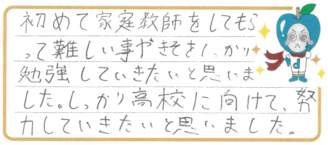 初めて家庭教師をしてもら
って難しい事やきそをしっかり
勉強していきたいと思いま
した。しっかり高校に向けて、努
力していきたいと思いました。
d